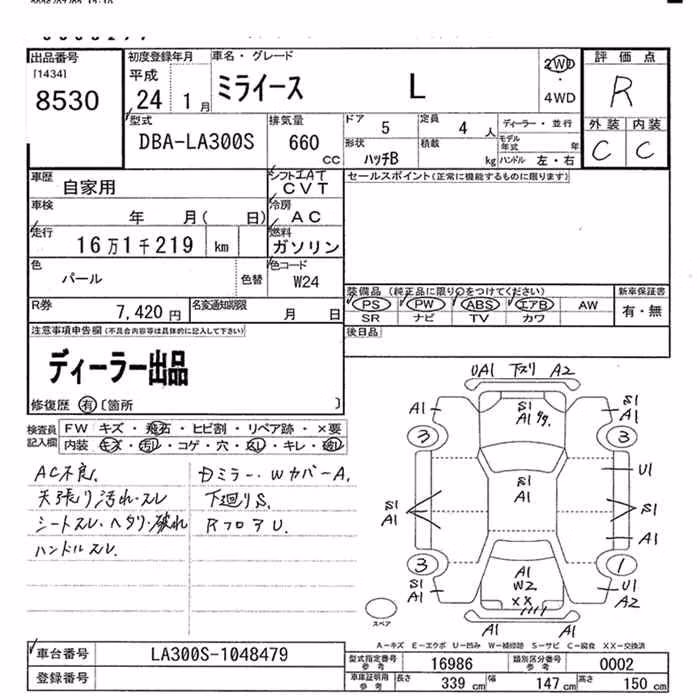 出品番号
[1434]
8530
初度登録年月
平成
24 1 月
車名・グレード
ミライース L
2WD
・
4WD
評価点
R
外装 内装
C C
型式
DBA-LA300S
排気量
660
CC
ドア
5
定員
4 人
ディーラー・並行
形状
ハッチB
積載
kg
モデル年式 年
ハンドル 左・右
車歴
自家用
シフト
CVT
車検
年 月( 日)
冷房
AC
走行
16万1千219 km
燃料
ガソリン
色
パール
色替
色コード
W24
R券
7,420 円
名変通知期限
月 日
セールスポイント(正常に機能するものに限ります)
装備品(純正品に限り○をつけてください)
PS PW ABS エアB AW
SR ナビ TV カワ
新車保証書
有・無
後日品
注意事項申告欄(不具合内容等は具体的に記入して下さい)
ディーラー出品
修復歴 有 〔箇所 〕
検査員記入欄
FW キズ・飛石・ヒビ割・リペア跡・×要
内装 キズ・汚レ・コゲ・穴・スレ・キレ・破レ
AC不良.
天張り汚れ・スレ
シートスレ・ヘタリ・破れ
ハンドルスレ.
Dミラー・WカバーA.
下廻りS.
RフロアU.
UA1 下スリ A2
A1
S1
A1
S1
A1
3
3
U1
S1
A1
S1
A1
S1
A1
A1
3
1
A1
W2
XX
S1
A1
U1
A2
A1 A1
スペア
A-キズ E-エクボ U-凹み W-補修跡 S-サビ C-腐食 XX-交換済
車台番号
LA300S-1048479
登録番号
型式指定番号
参考
16986
類別区分番号
参考
0002
車庫証明用
参考
長さ 339 cm 幅 147 cm 高さ 150 cm